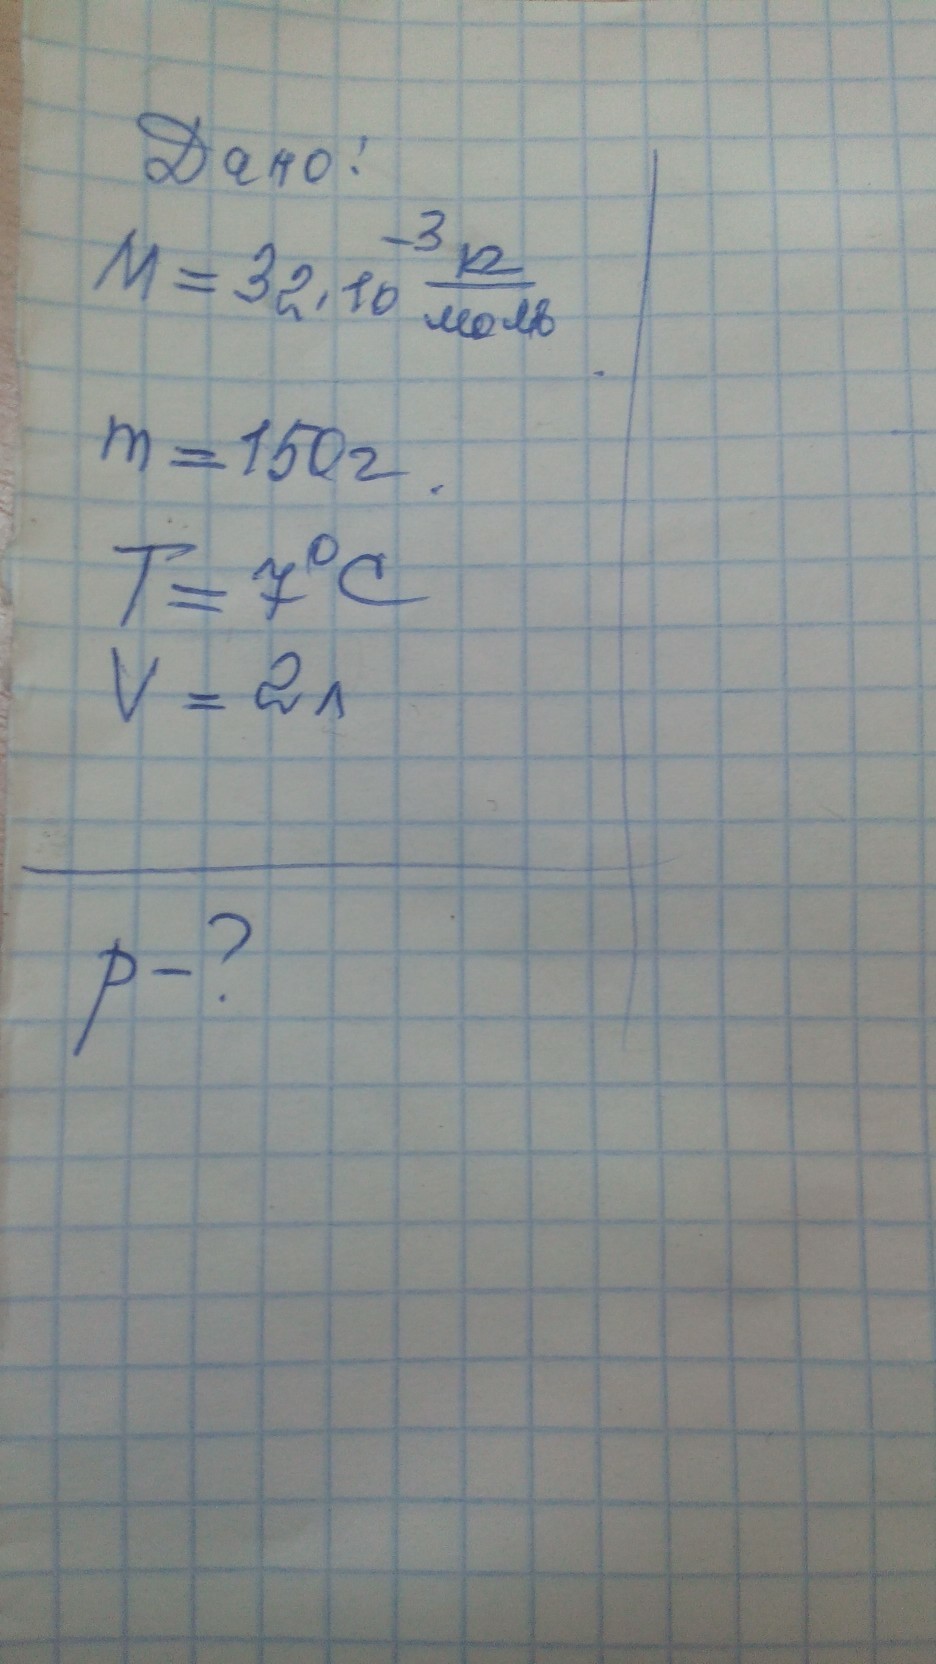 Дано:
M = 32·10⁻³ кг/моль
m = 150г.
T = 7°C
V = 2л
p - ?